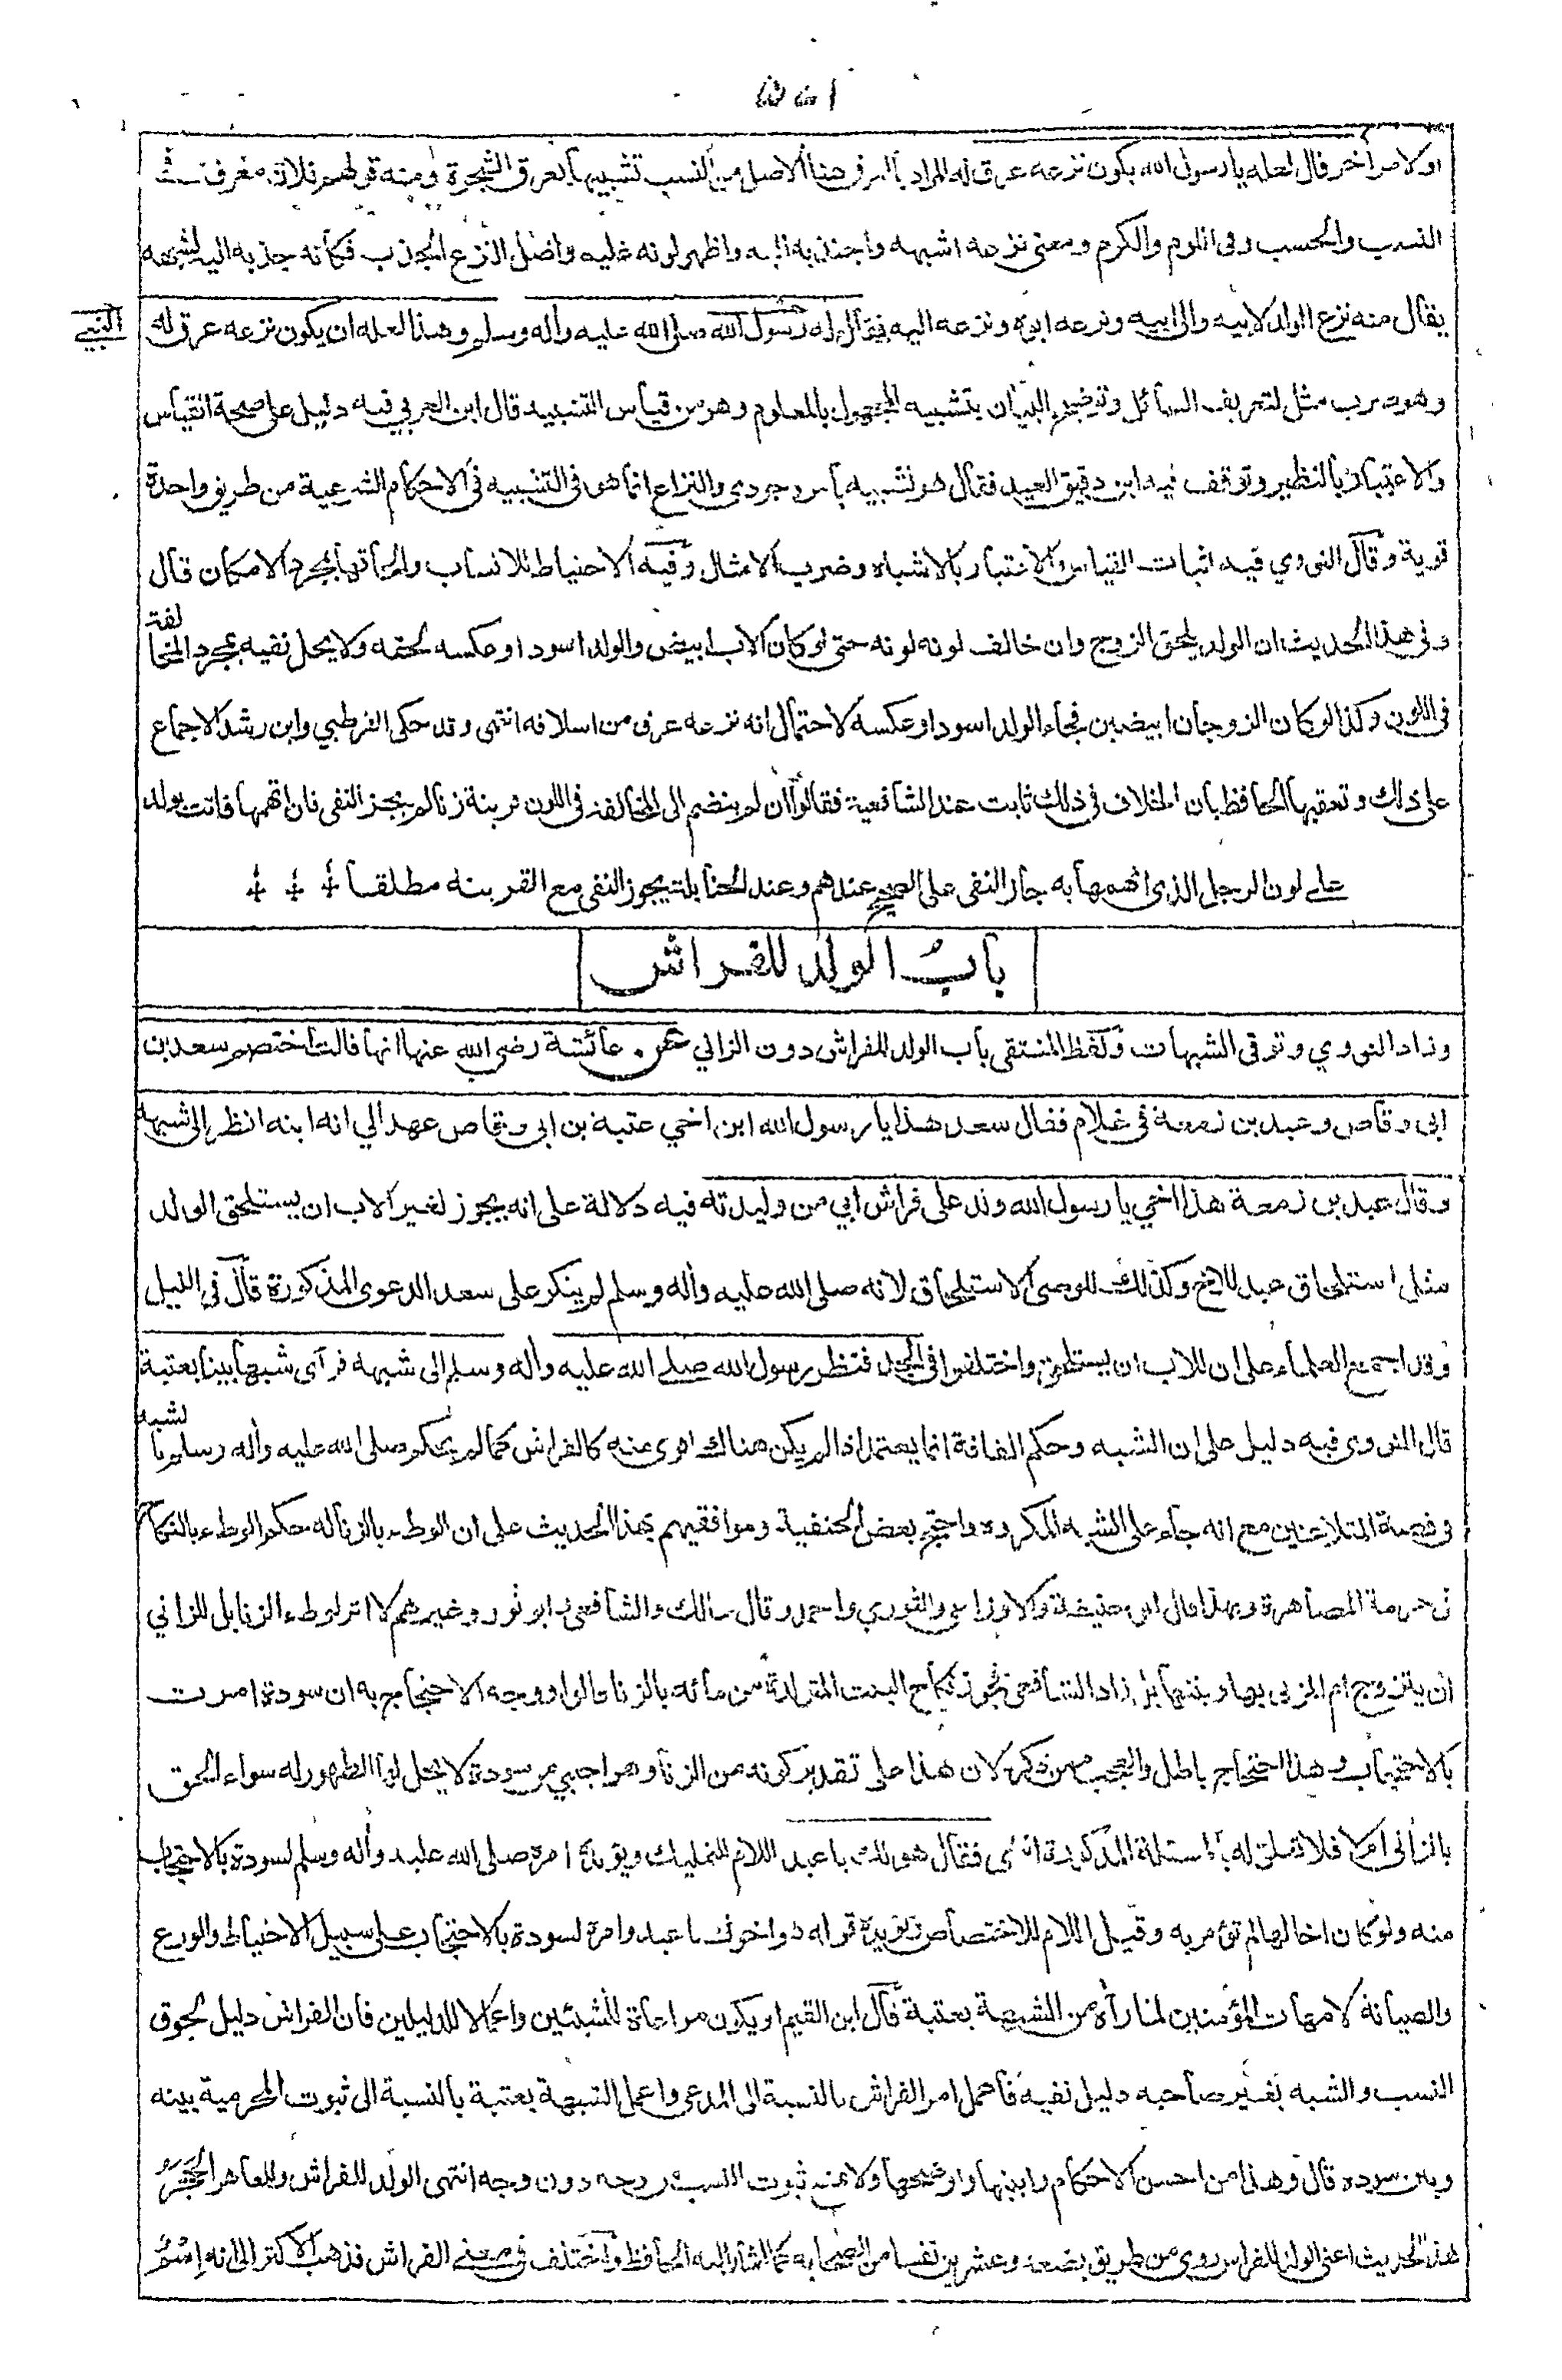 او لامر اخر قال لعله يا رسول الله يكون نزعه عرق له المراد بالعرق هنا الاصل من النسب تشبيها بعرق الشجرة ومنه قولهم فلان معرق في
النسب والحسب وفي اللوم والكرم ومعنى نزعه اشبهه واجتذبه اليه واظهر لونه عليه واصل النزع الجذب فكأنه جذبه اليه لشبهه
يقال منه نزع الولد لابيه والى ابيه ونزعه ابوه ونزعه اليه فقال له رسول الله صلى الله عليه وأله وسلم وهذا لعله ان يكون نزعه عرق له
النبي
وهو ضرب مثل لتعريف السائل وتوضيح البيان بتشبيه المجهول بالمعلوم وهو من قياس التشبيه قال ابن العربي فيه دليل على صحة القياس
والاعتبار بالنظير وتوقف فيه ابن دقيق العيد فقال هو تشبيه بأمر وجودي والنزاع انما هو في التشبيه في الاحكام الشرعية من طريق واحدة
قوية وقال النووي فيه اثبات القياس والاعتبار بالاشباه وضرب الامثال وفيه الاحتياط للانساب والحاقها بمجرد الامكان قال
وفي هذا الحديث ان الولد يلحق الزوج وان خالف لونه لونه حتى لو كان الاب ابيض والولد اسود او عكسه لحقه ولا يحل نفيه بمجرد المخالفة
في اللون وكذا لو كان الزوجان ابيضين فجاء الولد اسود او عكسه لاحتمال انه نزعه عرق من اسلافه انتهى وقد حكى القرطبي وابن رشد الاجماع
على ذلك وتعقبها الحافظ بان الخلاف في ذلك ثابت عند الشافعية فقالوا ان لم ينضم الى المخالفة في اللون قرينة زنا لم يجز النفي فان اتهمها فاتت بولد
على لون الرجل الذي اتهمها به جاز النفي على الصحيح عندهم وعند الحنابلة يجوز النفي مع القرينة مطلقا
باب الولد للفراش
وزاد النووي وتوقى الشبهات ولفظ المنتقى باب الولد للفراش دون الزاني عن عائشة رضي الله عنها انها قالت اختصم سعد بن
ابي وقاص وعبد بن زمعة في غلام فقال سعد هذا يا رسول الله ابن اخي عتبة بن ابي وقاص عهد الي انه ابنه انظر الى شبهه
وقال عبد بن زمعة هذا اخي يا رسول الله ولد على فراش ابي من وليدته فيه دلالة على انه يجوز لغير الاب ان يستلحق الولد
مثل استلحاق عبد للاخ وكذلك للوصي الاستلحاق لانه صلى الله عليه وأله وسلم لم ينكر على سعد الدعوى المذكورة قال في النيل
وقد اجمع العلماء على ان للاب ان يستلحق واختلفوا في الجد فنظر رسول الله صلى الله عليه وأله وسلم الى شبهه فرآى شبها بينا بعتبة
قال النووي فيه دليل على ان الشبه وحكم القافة انما يعتمد اذا لم يكن هناك اقوى منه كالفراش كما لم يحكم صلى الله عليه وأله وسلم بالشبه
في قصة المتلاعنين مع انه جاء على الشبه المكروه واحتج بعض الحنفية وموافقيهم بهذا الحديث على ان الوطء بالزنا له حكم الوطء بالنكاح
في حرمة المصاهرة وبهذا قال ابو حنيفة والاوزاعي والثوري واحمد وقال مالك والشافعي وابو ثور وغيرهم لا اثر لوطء الزنا بل للزاني
ان يتزوج ام المزني بها وبنتها بل زاد الشافعي فجوز نكاح البنت المتولدة من مائه بالزنا قالوا ووجه الاحتجاج به ان سودة امرت
بالاحتجاب وهذا احتجاج باطل والعجب ممن ذكره لان هذا على تقدير كونه من الزنا وهو اجنبي من سودة لا يحل لها الظهور له سواء الحق
بالزاني ام لا فلا تعلق له بالمسئلة المذكورة انتهى فقال هو لك يا عبد اللام للتمليك ويؤيده امره صلى الله عليه وأله وسلم لسودة بالاحتجاب
منه ولو كان اخا لها لم تؤمر به وقيل اللام للاختصاص يؤيده قوله هو اخوك يا عبد وامره لسودة بالاحتجاب على سبيل الاحتياط والورع
والصيانة لامهات المؤمنين لما رأه من الشبهة بعتبة قال ابن القيم او يكون مراعاة للشيئين واعمالا للدليلين فان الفراش دليل لحوق
النسب والشبه بغير صاحبه دليل نفيه فأعمل امر الفراش بالنسبة الى المدعي واعمل الشبهة بعتبة بالنسبة الى ثبوت المحرمية بينه
وبين سودة قال وهذا من احسن الاحكام وابينها واوضحها ولا يمنع ثبوت النسب من وجه دون وجه انتهى الولد للفراش وللعاهر الحجر
هذا الحديث اعني الولد للفراش روي من طريق بضعة وعشرين نفسا من الصحابة كما اشار اليه الحافظ واختلف في معنى الفراش فذهب الاكثر الى انه اسم